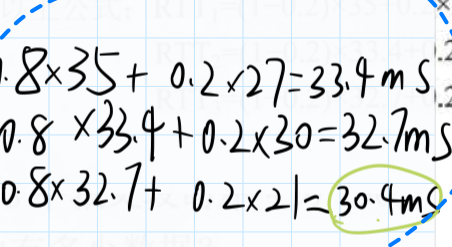 .8×35+ 0.2×27=33.4ms
0.8 ×33.4+0.2×30=32.7ms
0.8×32.7+ 0.2×21=30.4ms